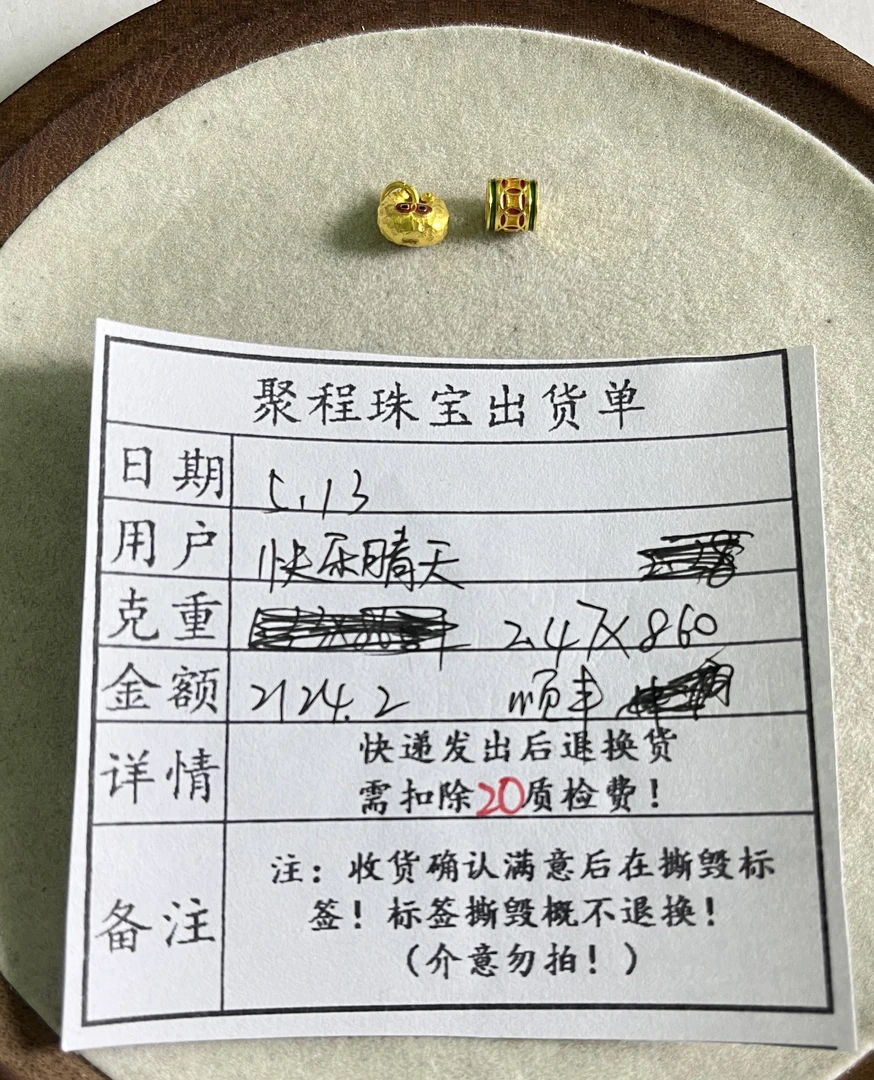 聚程珠宝出货单
日期 5.13
用户 快乐晴天
克重 2.47×860
金额 2124.2 顺丰
详情 快递发出后退换货
需扣除20质检费！
备注 注：收货确认满意后在撕毁标
签！标签撕毁概不退换！
（介意勿拍！）